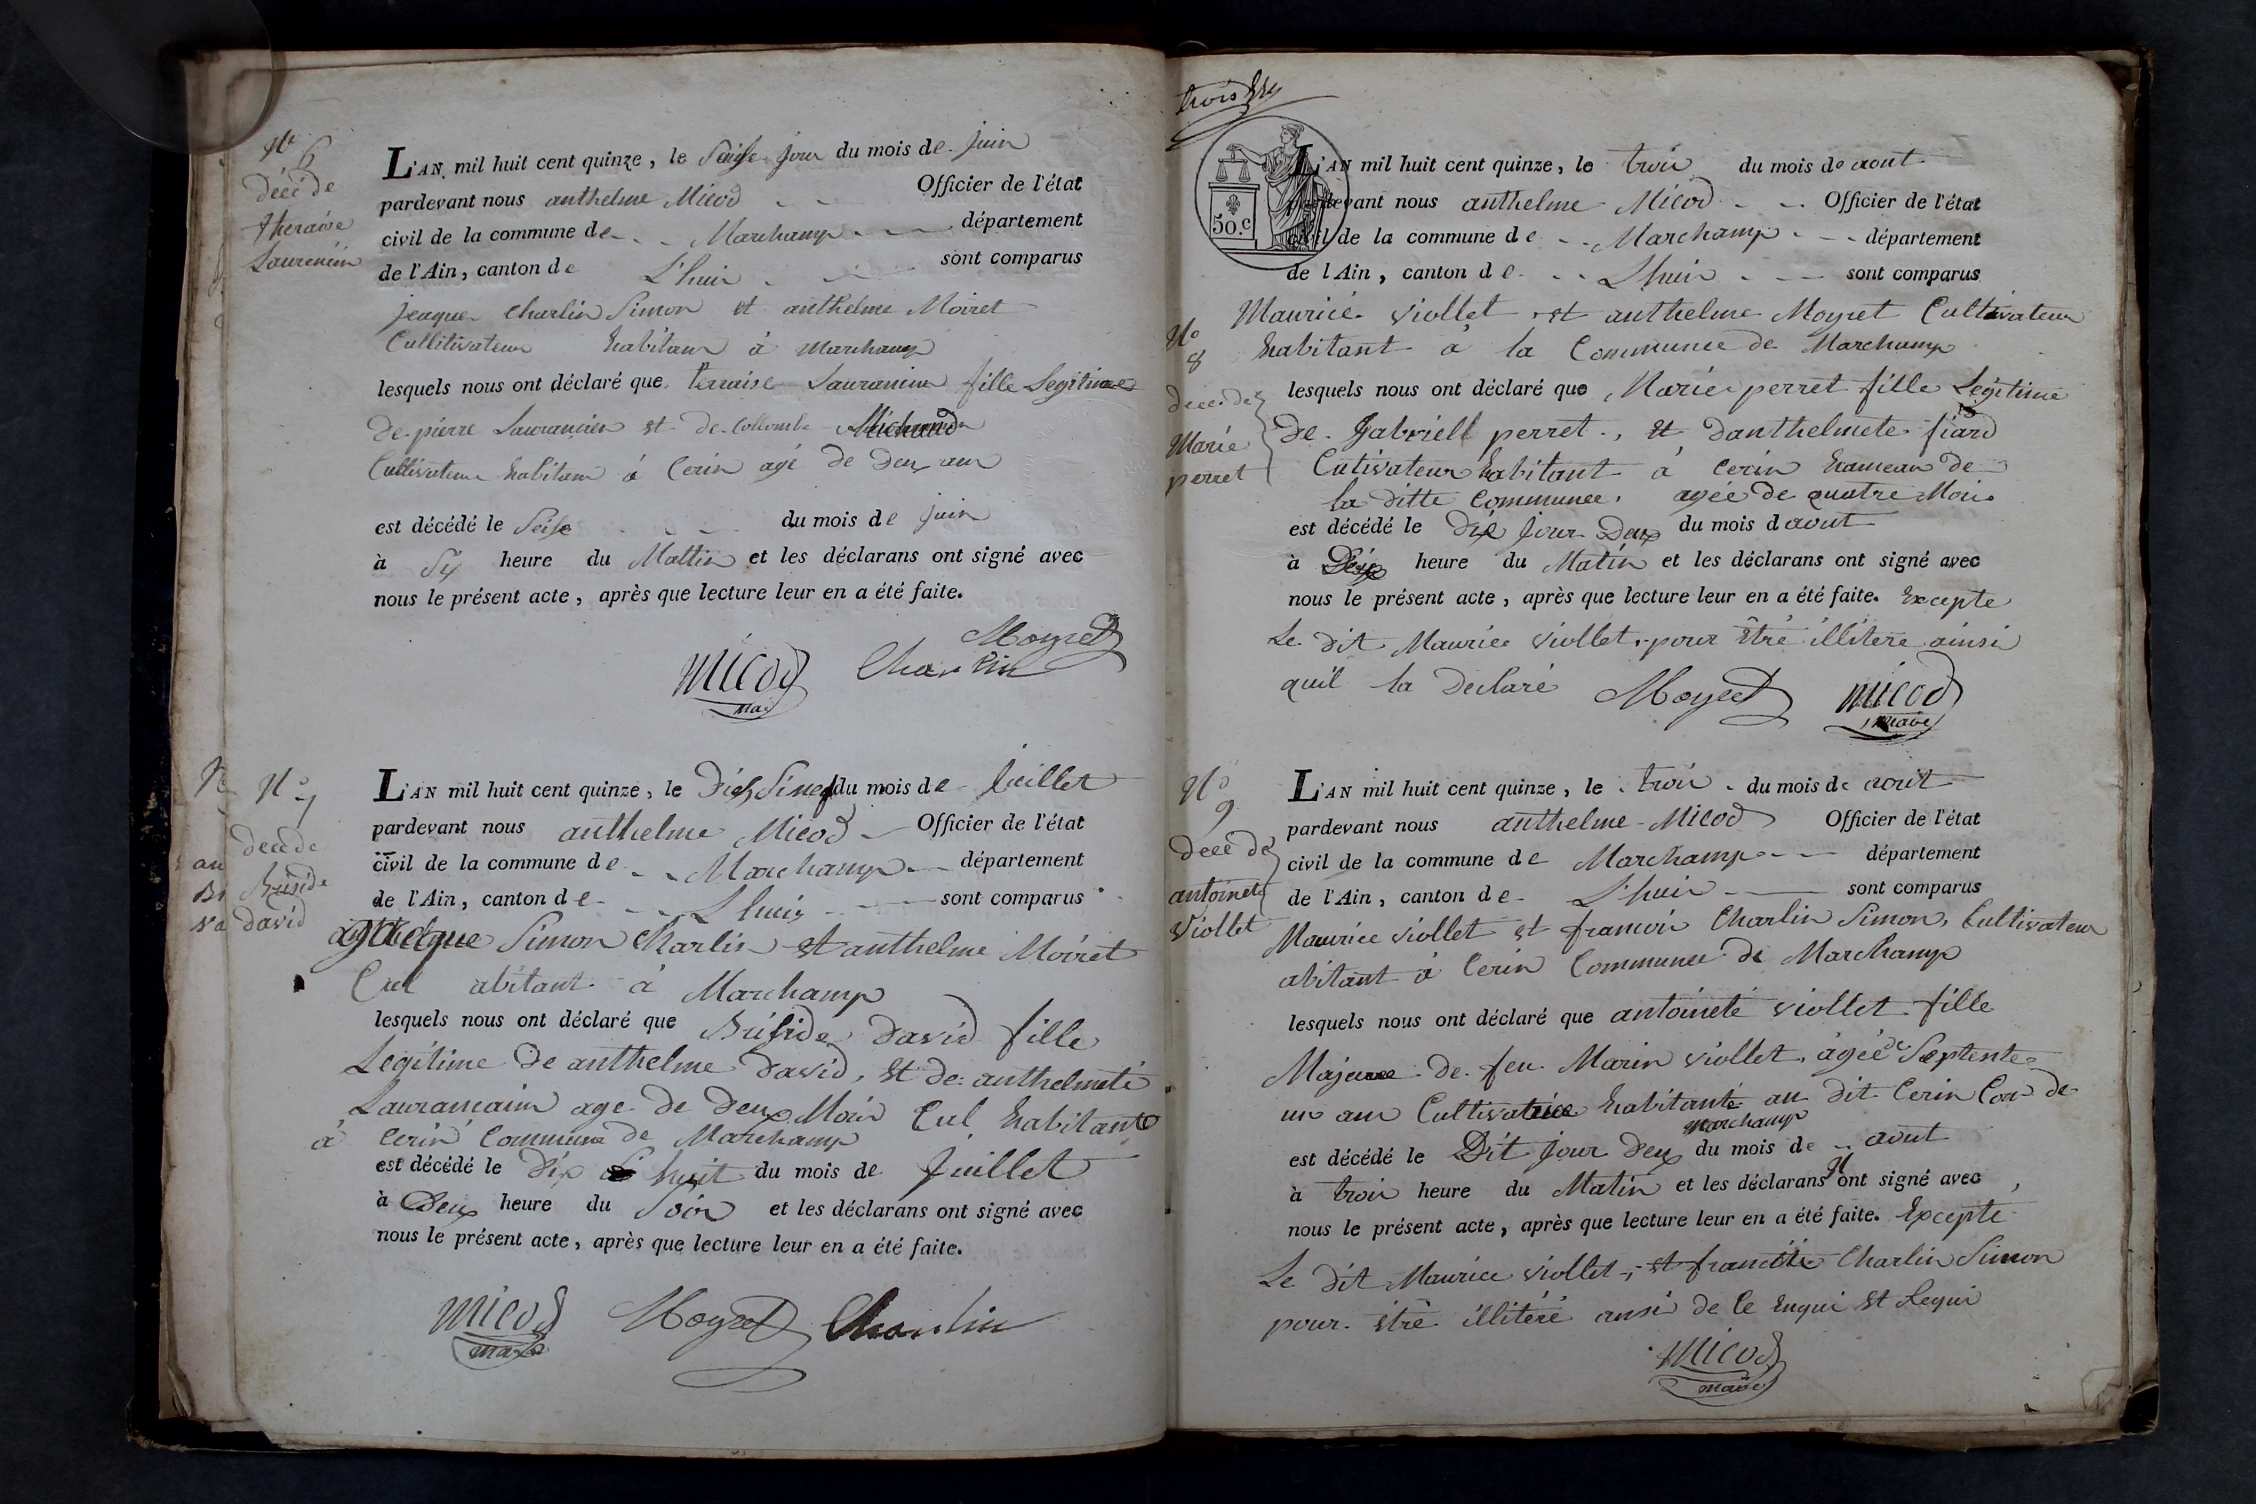 N° 6
décé de
theraise
Laurencin
L'AN mil huit cent quinze, le Seise jour du mois de juin
pardevant nous anthelme Micod Officier de l'état
civil de la commune de Marchamp département
de l'Ain, canton de L'huir sont comparus
jeaque Charlin Simon et anthelme Moiret
Cultitivateur habitans à Marchamp
lesquels nous ont déclaré que terraise Lauranin fille Legitime
de pierre Laurancien et de Collombe Michaud
Cultivateur habitans á Cerin agé de deux ans
est décédé le Seise du mois de juin
à Six heure du Mattin et les déclarans ont signé avec
nous le présent acte, après que lecture leur en a été faite.
Moyret
Micod Charlin
Mai
N° 7
decé de
Briside
david
L'AN mil huit cent quinze, le du mois de Juillet
pardevant nous anthelme Micod Officier de l'état
civil de la commune de Marchamp département
de l'Ain, canton de L'huis sont comparus
Simon Charlin et anthelme Moiret
Cul abitant à Marchamp
lesquels nous ont déclaré que Briside David fille
Legitime de anthelme David, et de anthelmete
Laurancain age de deux Mois Cul habitante
à Cerin Commune de Marchamp
est décédé le Dix huit du mois de Juillet
à Deux heure du Soir et les déclarans ont signé avec
nous le présent acte, après que lecture leur en a été faite.
Micod Moyret Charlin
maire
trois
50.c
L'AN mil huit cent quinze, le trois du mois de aout
pardevant nous anthelme Micod Officier de l'état
civil de la commune de Marchamp département
de l'Ain, canton de L'huis sont comparus
Maurice viollet et anthelme Moyret Cultivateur
N° 8
habitant à la Communee de Marchamp
lesquels nous ont déclaré que Marie perret fille Legitime
decé de
Marie
perret
de Gabriell perret, et danthelmete fiard
Cutivateur habitant à cerin hameau de
la ditte Communee. agée de quatre Mois
est décédé le dit Jour Deux du mois d aout
à heure du Matin et les déclarans ont signé avec
nous le présent acte, après que lecture leur en a été faite. Excepte
Le dit Maurice viollet pour étre illitere ainsi
quil la declaré Moyret Micod
maire
N° 9
decé de
antoinete
Viollet
L'AN mil huit cent quinze, le trois du mois de aout
pardevant nous anthelme Micod Officier de l'état
civil de la commune de Marchamp département
de l'Ain, canton de L'huis sont comparus
Maurice viollet et francois Charlin Simon, Cultivateur
abitant à Cerin Communee de Marchamp
lesquels nous ont déclaré que antoineté viollet fille
Majeure de feu Marin viollet, ágée de Septente
un ans Cultivatrice habitante au dit Cerin Con de
Marchamp
est décédé le Dit Jour deux du mois de aout
à trois heure du Matin et les déclarans ont signé avec
nous le présent acte, après que lecture leur en a été faite. Excepté
Le dit Maurice viollet, et francois Charlin Simon
pour étre illitéré ansi de Ce enqui et Requi
Micod
maire